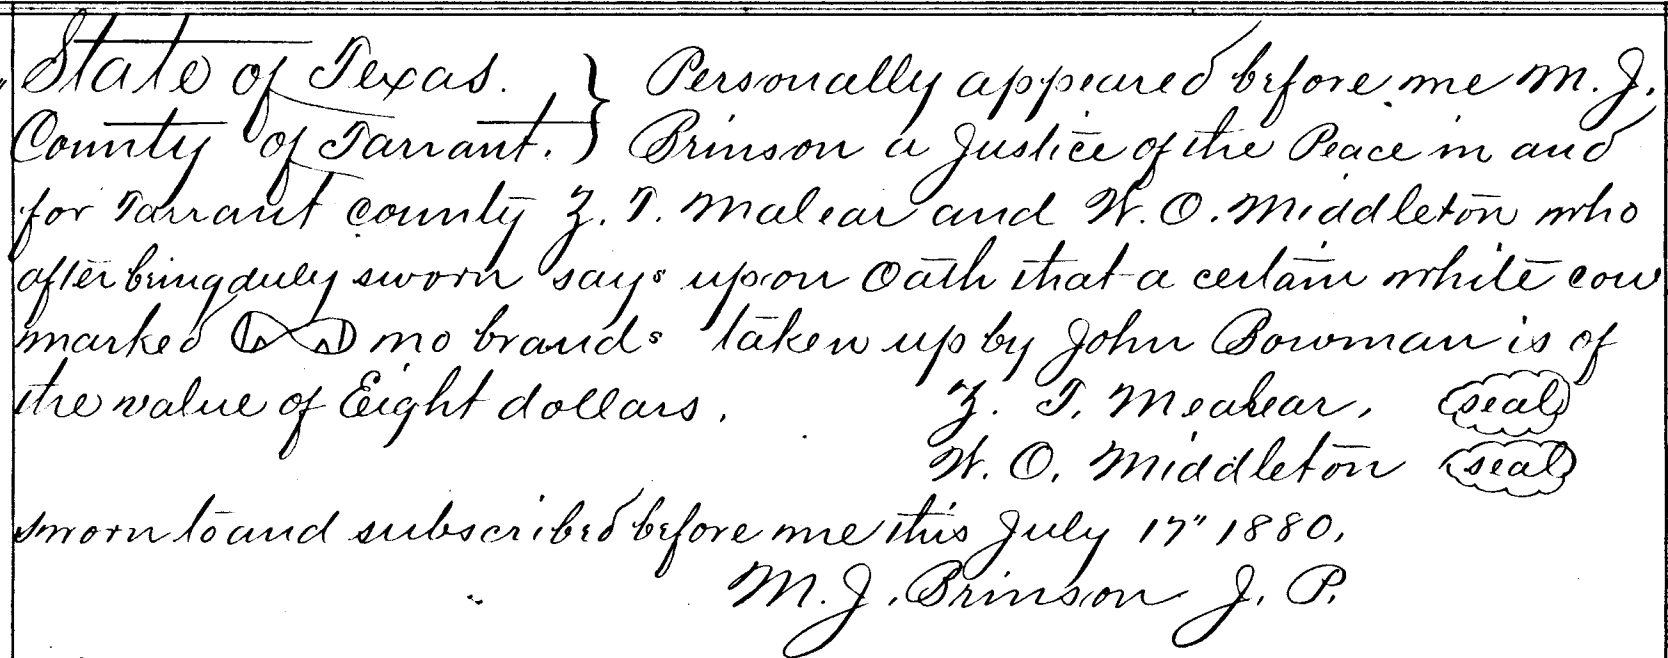 State of Texas. } Personally appeared before me M. J.
County of Tarrant. } Brinson a Justice of the Peace in and
for Tarrant county Z. T. Malear and W. O. Middleton who
after being duly sworn says upon Oath that a certain white cow
marked no brands taken up by John Bowman is of
the value of Eight dollars. Z. T. Mealear, seal
W. O. Middleton seal
sworn to and subscribed before me this July 17" 1880,
M. J. Brinson J. P.